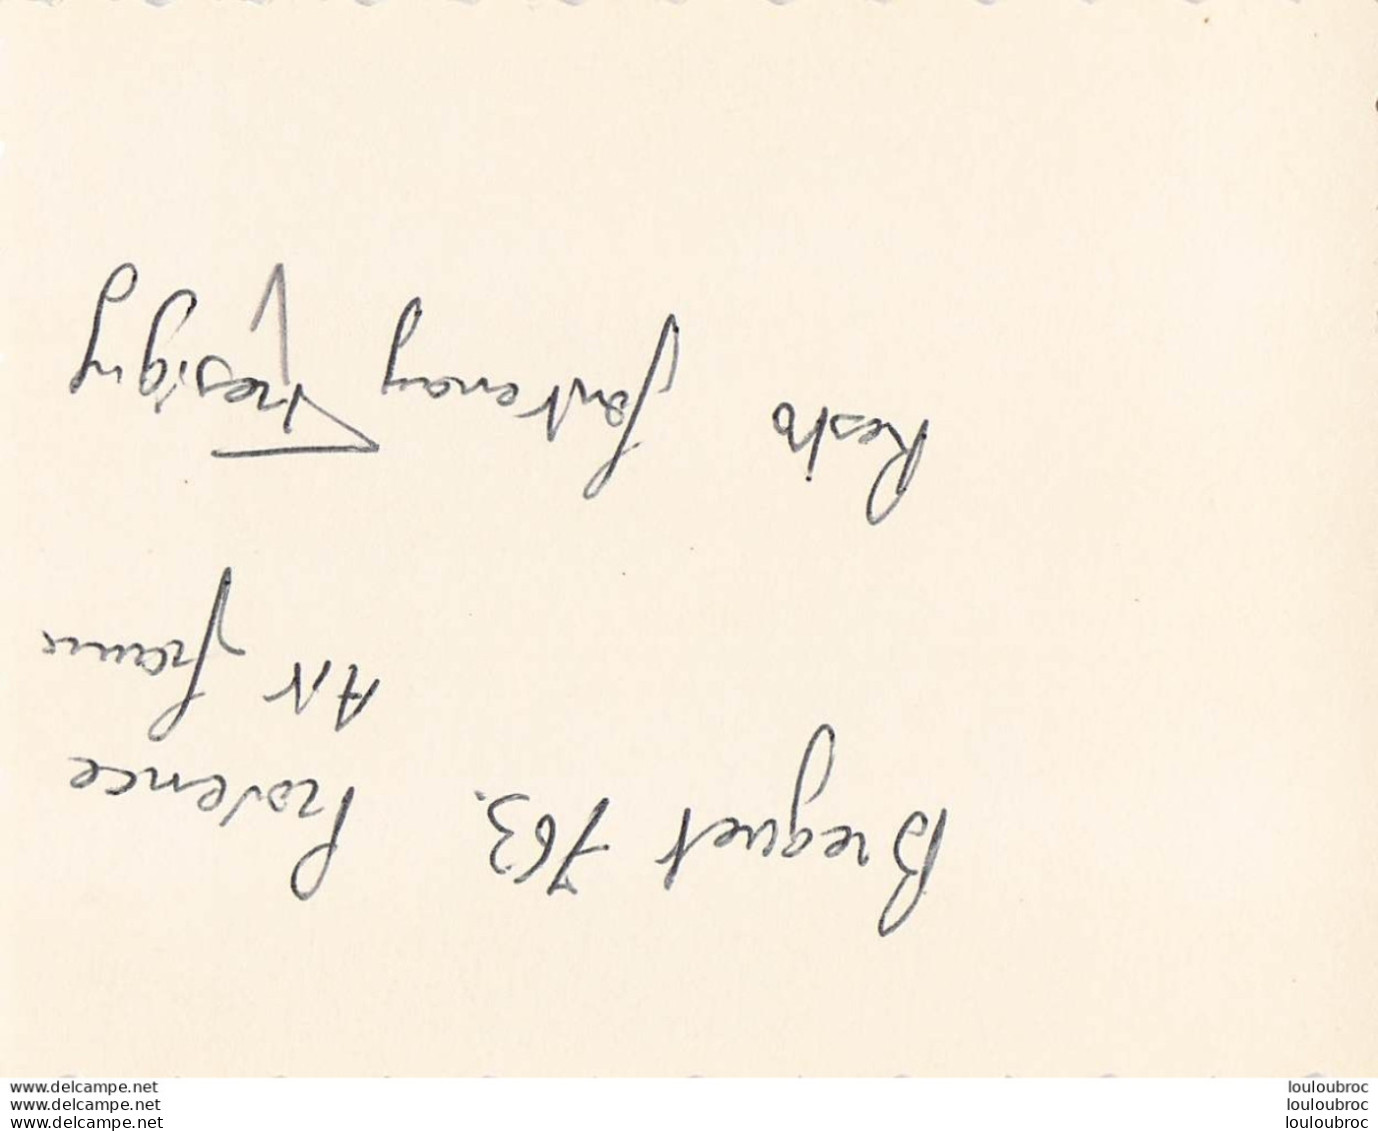 Breguet 763. Provence
AIR France
Resto Fontenay Tresigny
www.delcampe.net
www.delcampe.net
www.delcampe.net
louloubroc
louloubroc
louloubroc